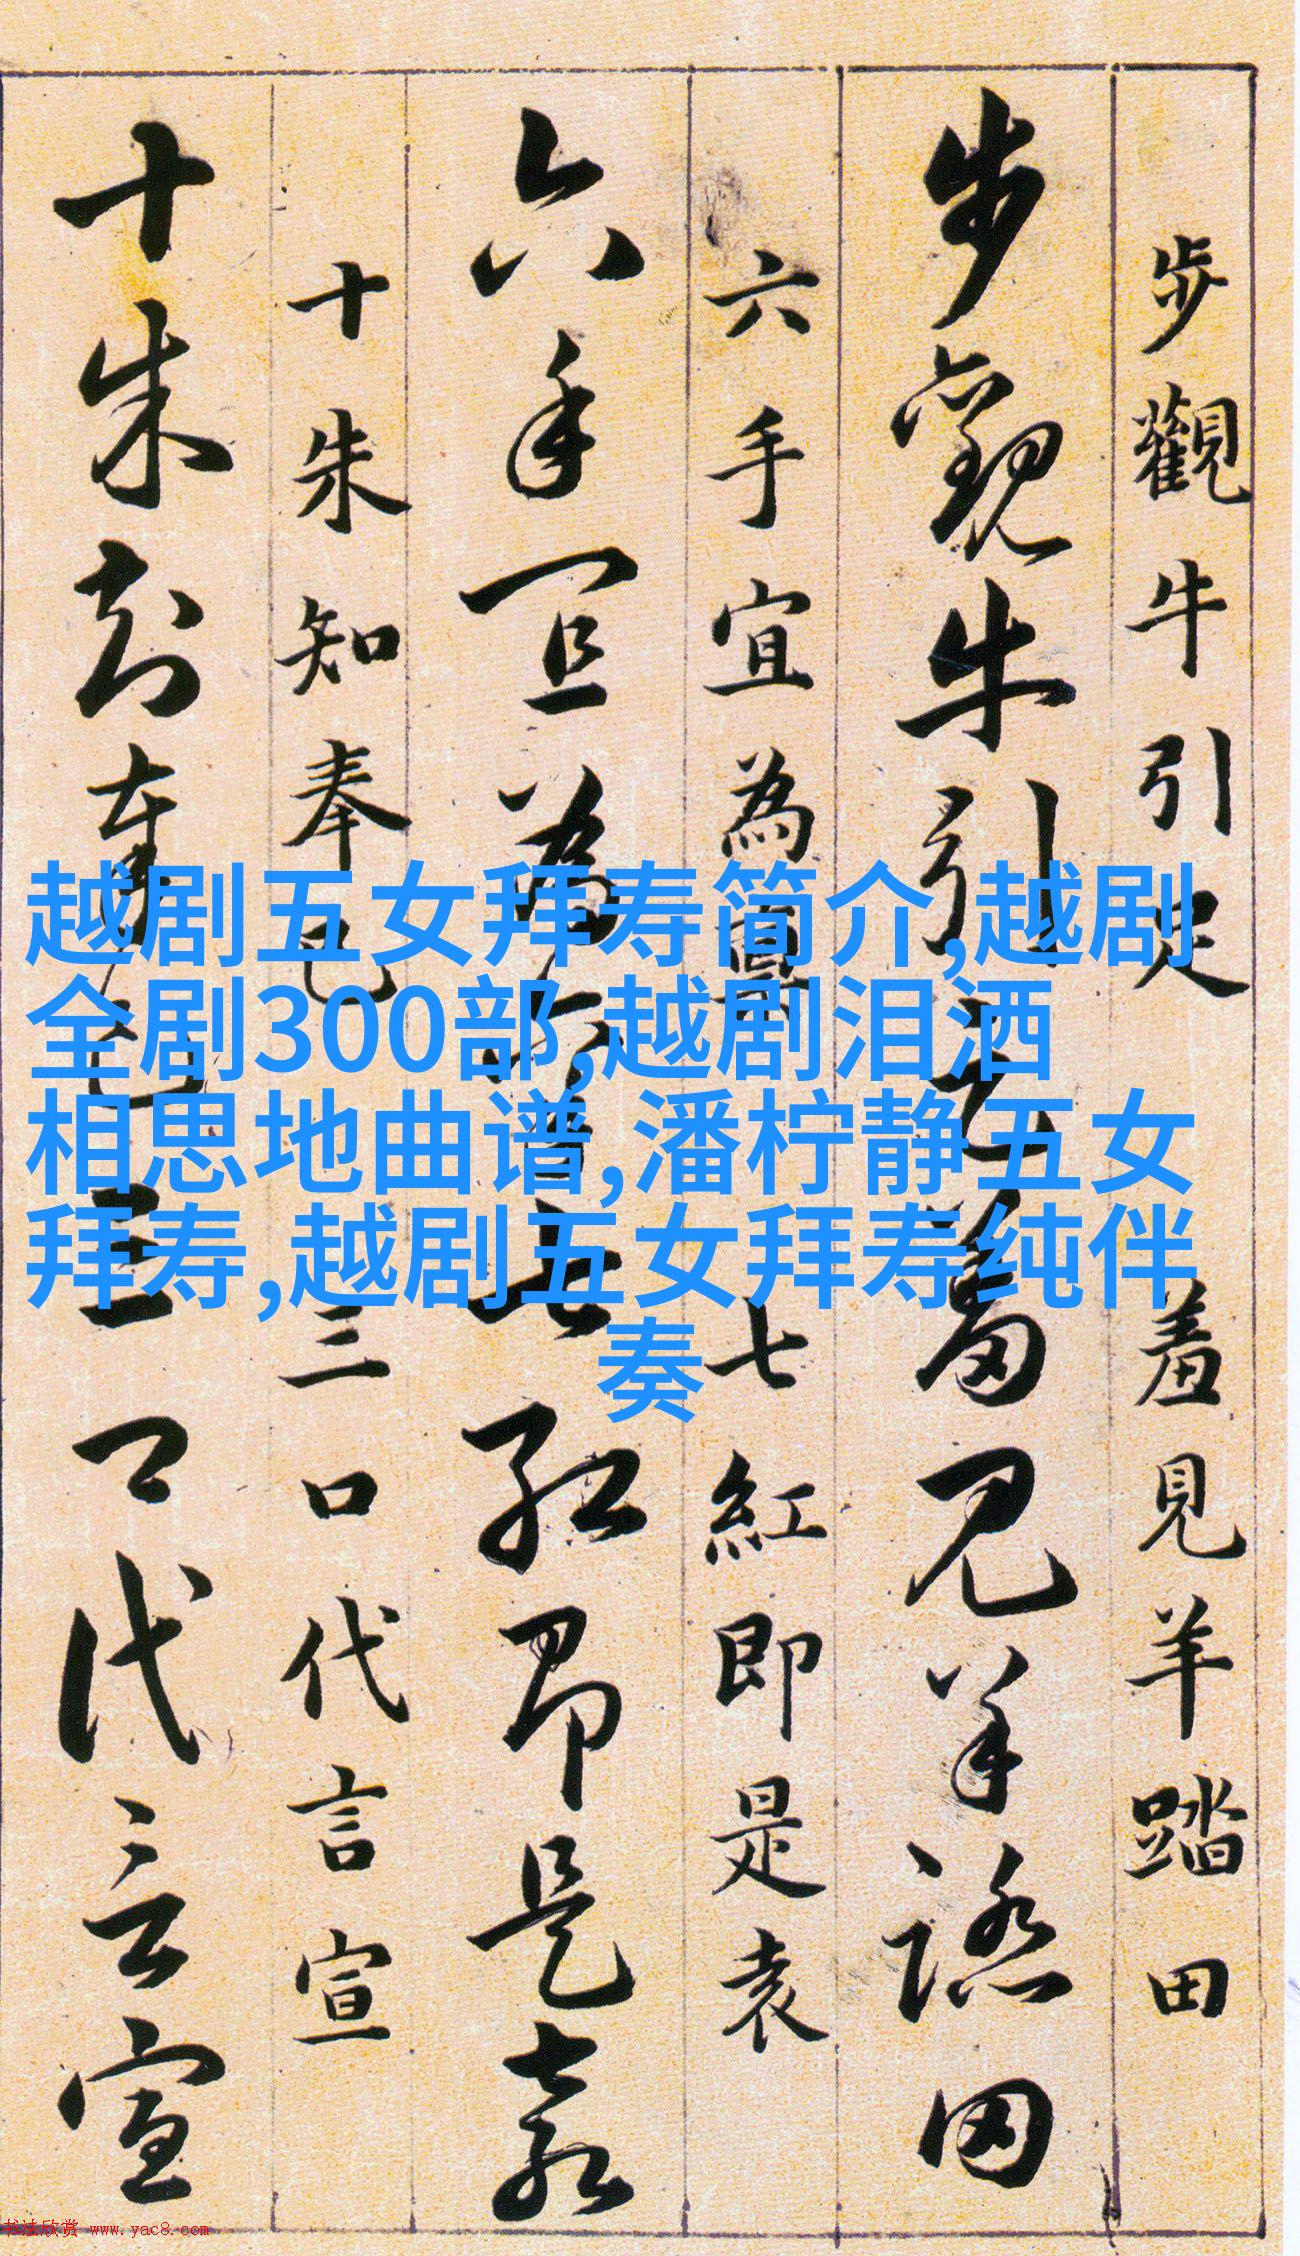 步觀牛引足羞見羊踏田
步觀牛引足羞見羊踏田
六手宜為七紅即是袁
六手宜為七紅即是袁
十朱知奉已三口代言宣
十朱知奉已三口代言宣
越剧五女拜寿简介,越剧
全剧300部,越剧泪洒
相思地曲谱,潘柠静五女
拜寿,越剧五女拜寿纯伴
奏
书法欣赏 www.yac8.com